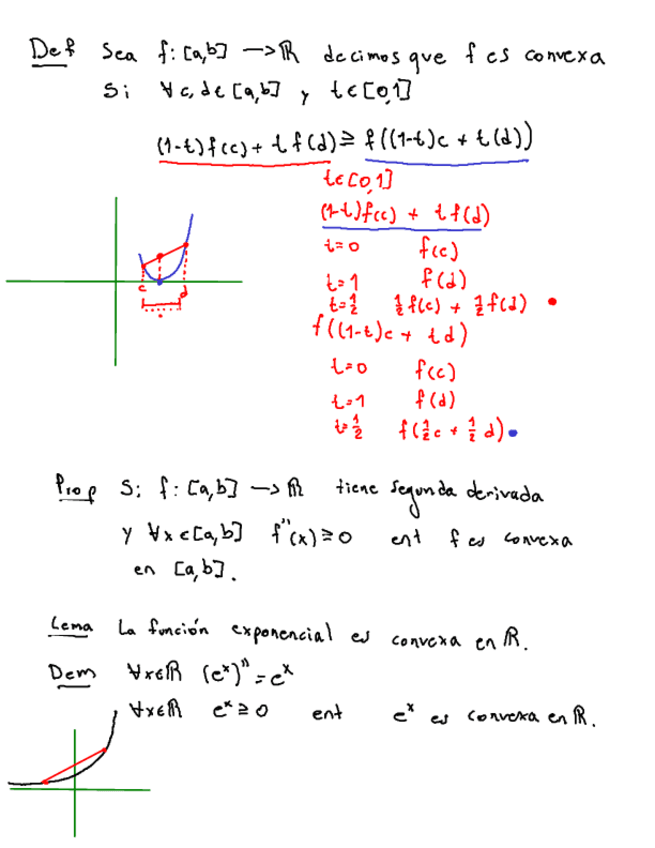 Def Sea f: [a,b] —> ℝ decimos que f es convexa
Si ∀ c, d ∈ [a,b] y t ∈ [0,1]
(1-t)f(c) + t f(d) ≥ f((1-t)c + t(d))
t ∈ [0,1]
(1-t)f(c) + t f(d)
t=0 f(c)
t=1 f(d)
t=½ ½f(c) + ½f(d)
f((1-t)c + td)
t=0 f(c)
t=1 f(d)
t=½ f(½c + ½d)
c d
Prop Si f: [a,b] —> ℝ tiene segunda derivada
y ∀x ∈ [a,b] f''(x) ≥ 0 ent f es convexa
en [a,b].
Lema La función exponencial es convexa en ℝ.
Dem ∀x∈ℝ (eˣ)'' = eˣ
∀x∈ℝ eˣ ≥ 0 ent eˣ es convexa en ℝ.